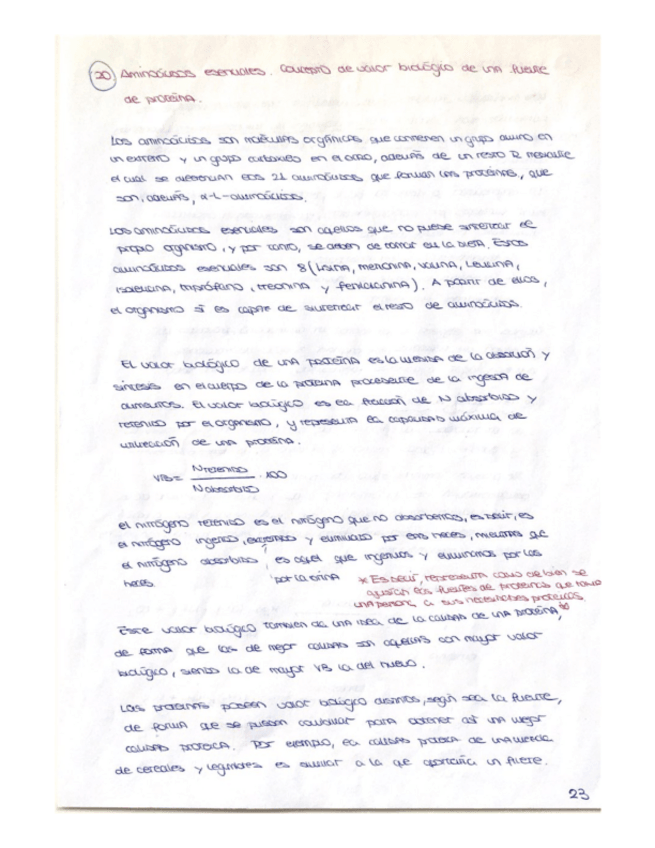 20 Aminoácidos esenciales. Concepto de valor biológico de una fuente
de proteína.
Los aminoácidos son moléculas orgánicas, que contienen un grupo amino en
un extremo y un grupo carboxilo en el otro, además de un resto R mediante
el cual se diferencian los 21 aminoácidos que forman las proteínas, que
son, además, α-L-aminoácidos.
Los aminoácidos esenciales son aquellos que no puede sintetizar el
propio organismo, y por tanto, se deben de tomar en la dieta. Estos
aminoácidos esenciales son 8 (Lisina, metionina, valina, Leucina,
isoleucina, triptófano, treonina y fenilalanina). A partir de ellos,
el organismo sí es capaz de sintetizar el resto de aminoácidos.
El valor biológico de una proteína es la medida de la absorción y
síntesis en el cuerpo de la proteína procedente de la ingesta de
alimentos. El valor biológico es la fracción de N absorbido y
retenido por el organismo, y representa la capacidad máxima de
utilización de una proteína.
VB = N retenido / N absorbido · 100
el nitrógeno retenido es el nitrógeno que no absorbemos, es decir, es
el nitrógeno ingerido, y eliminado por las heces, mientras que
el nitrógeno absorbido, es aquel que ingerimos y eliminamos por las
heces. por la orina
* Es decir, representa como de bien se
ajustan las fuentes de proteínas que toma
una persona, a sus necesidades proteicas.
Este valor biológico también da una idea de la calidad de una proteína,*
de forma que las de mejor calidad son aquellas con mayor valor
biológico, siendo la de mayor VB la del huevo.
Las proteínas poseen valor biológico distintos, según sea la fuente,
de forma que se pueden combinar para obtener así una mejor
calidad proteica. Por ejemplo, la calidad proteica de una mezcla
de cereales y legumbres es similar a la que aportaría un filete.
23